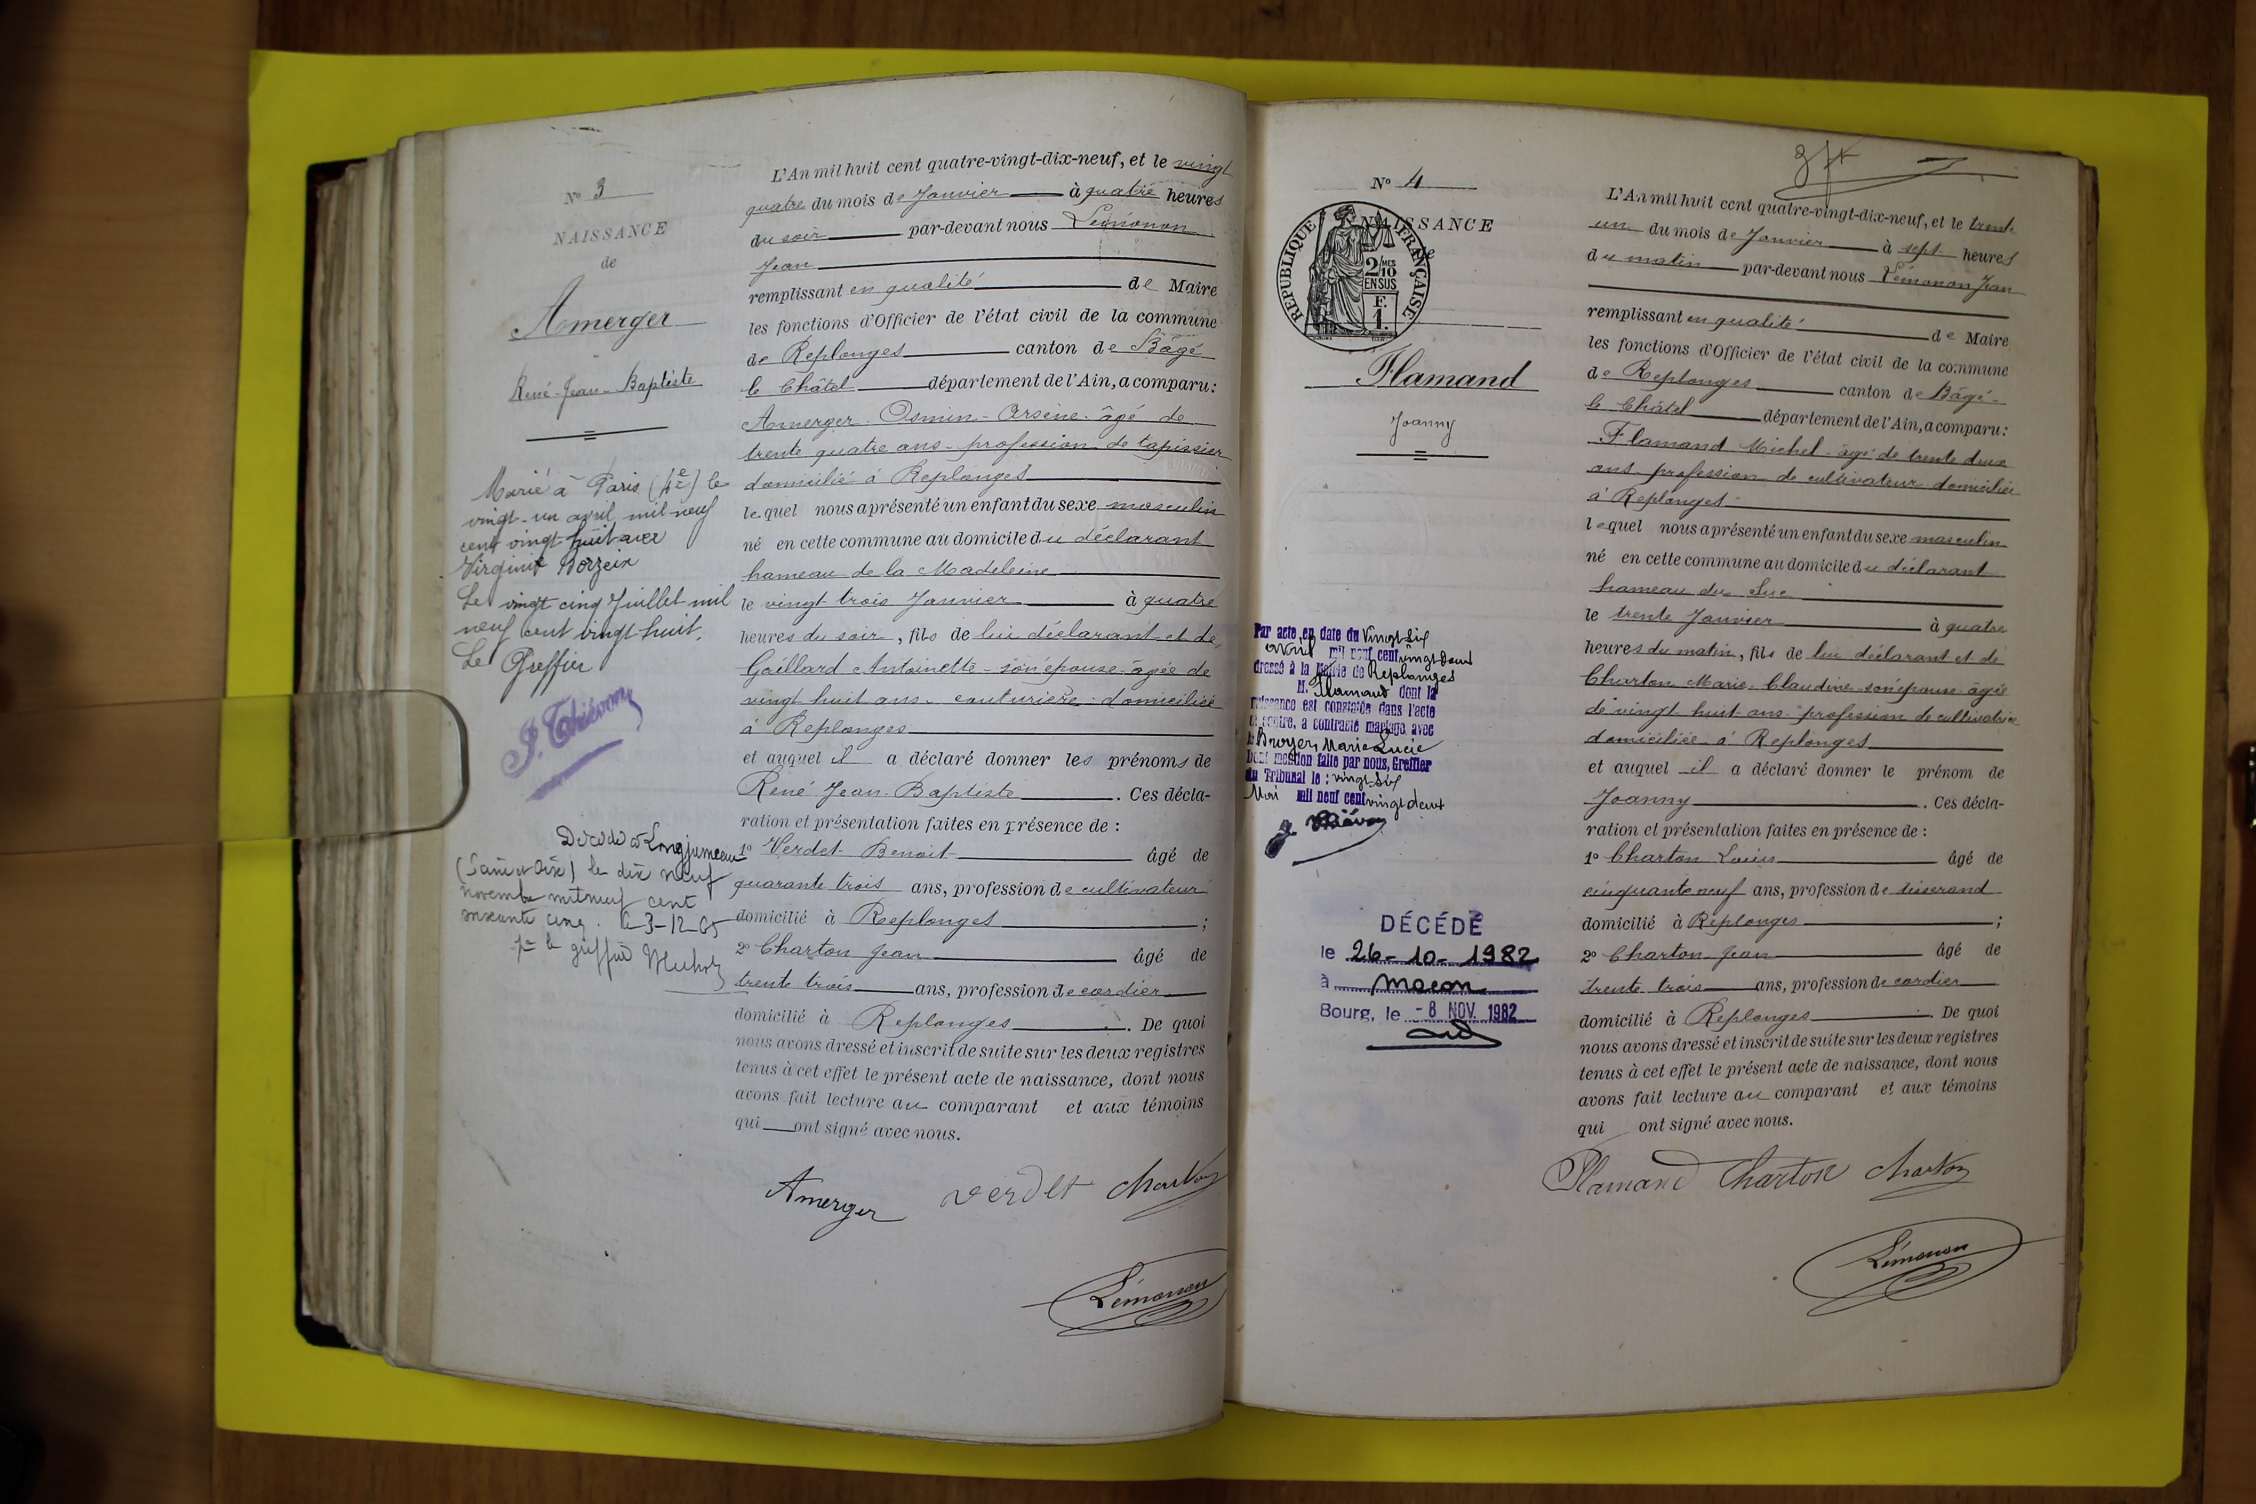 N° 3
NAISSANCE
de
Amerger
René-Jean-Baptiste
Marié à Paris (4e) le
vingt-un avril mil neuf
cent vingt huit avec
Virginie Borzeix
Le vingt cinq Juillet mil
neuf cent vingt huit.
Le Greffier
J. Thiévon
Décédé à Longjumeau
(Seine et Oise) le dix neuf
novembre mil neuf cent
soixante cinq. le 3-12-65
pr le greffier
L'An mil huit cent quatre-vingt-dix-neuf, et le vingt
quatre du mois de Janvier à quatre heures
du soir par-devant nous Lémonon
Jean
remplissant en qualité de Maire
les fonctions d'Officier de l'état civil de la commune
de Replonges canton de Bâgé
le Châtel département de l'Ain, a comparu:
Amerger Osmin-Arsène âgé de
trente quatre ans profession de tapissier
domicilié à Replonges
lequel nous a présenté un enfant du sexe masculin
né en cette commune au domicile du déclarant
hameau de la Madeleine
le vingt trois Janvier à quatre
heures du soir, fils de lui déclarant et de
Gaillard Antoinette son épouse âgée de
vingt huit ans couturière domiciliée
à Replonges
et auquel il a déclaré donner les prénoms de
René Jean Baptiste. Ces décla-
ration et présentation faites en présence de :
1° Verdet Benoit âgé de
quarante trois ans, profession de cultivateur
domicilié à Replonges ;
2° Charton Jean âgé de
trente trois ans, profession de cordier
domicilié à Replonges. De quoi
nous avons dressé et inscrit de suite sur les deux registres
tenus à cet effet le présent acte de naissance, dont nous
avons fait lecture au comparant et aux témoins
qui ont signé avec nous.
Amerger Verdet Charton
Lémonon
N° 4
NAISSANCE
de
REPUBLIQUE FRANÇAISE
2/10 MES
EN SUS
F.
1.
Flamand
Joanny
Par acte en date du vingt six
avril mil neuf cent vingt deux
dressé à la Mairie de Replonges
M. Flamand dont la
naissance est constatée dans l'acte
ci contre, a contracté mariage avec
Broyer, Marie Lucie
Dont mention faite par nous, Greffier
du Tribunal le : vingt six
Mai mil neuf cent vingt deux
J. Thiévon
DÉCÉDÉ
le 26-10-1982
à Macon
Bourg, le -8 NOV. 1982
L'An mil huit cent quatre-vingt-dix-neuf, et le trente
un du mois de Janvier à sept heures
du matin par-devant nous Lémonon Jean
remplissant en qualité de Maire
les fonctions d'Officier de l'état civil de la commune
de Replonges canton de Bâgé-
le Châtel département de l'Ain, a comparu:
Flamand Michel âgé de trente deux
ans profession de cultivateur domicilié
à Replonges
lequel nous a présenté un enfant du sexe masculin
né en cette commune au domicile du déclarant
hameau du
le trente Janvier à quatre
heures du matin, fils de lui déclarant et de
Charton Marie-Claudine son épouse âgée
de vingt huit ans profession de cultivatrice
domiciliée à Replonges
et auquel il a déclaré donner le prénom de
Joanny. Ces décla-
ration et présentation faites en présence de :
1° Charton Louis âgé de
cinquante neuf ans, profession de tisserand
domicilié à Replonges ;
2° Charton Jean âgé de
trente trois ans, profession de cordier
domicilié à Replonges. De quoi
nous avons dressé et inscrit de suite sur les deux registres
tenus à cet effet le présent acte de naissance, dont nous
avons fait lecture au comparant et aux témoins
qui ont signé avec nous.
Flamand Charton Charton
Lémonon